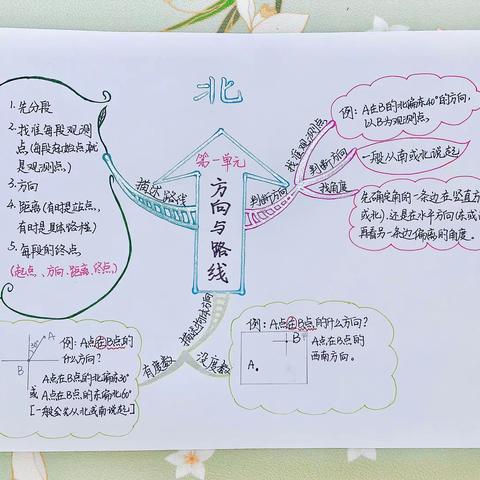 北
第一单元
方向与路线
描述路线
1. 先分段
2. 找准每段观测
点(每段起始点就
是观测点)
3. 方向
4. 距离(有时是站点,
有时是具体路程)
5. 每段的终点
(起点、方向、距离、终点)
判断方向
找准观测点
例: A在B的北偏东40°的方向,
以B为观测点
判断方向
一般从南或北说起
找角度
先确定角的一条边在竖直方
或北), 还是在水平方向(东或
再看另一条边偏离的角度。
描述物体方向
有度数
例: A点在B点的
什么方向?
A点在B点的北偏东30°
或 A点在B点的东偏北60°
[一般会先从北或南说起]
30°
A
B
没度数
例: A点在B点的什么方向?
A点在B点的
西南方向。
B
A